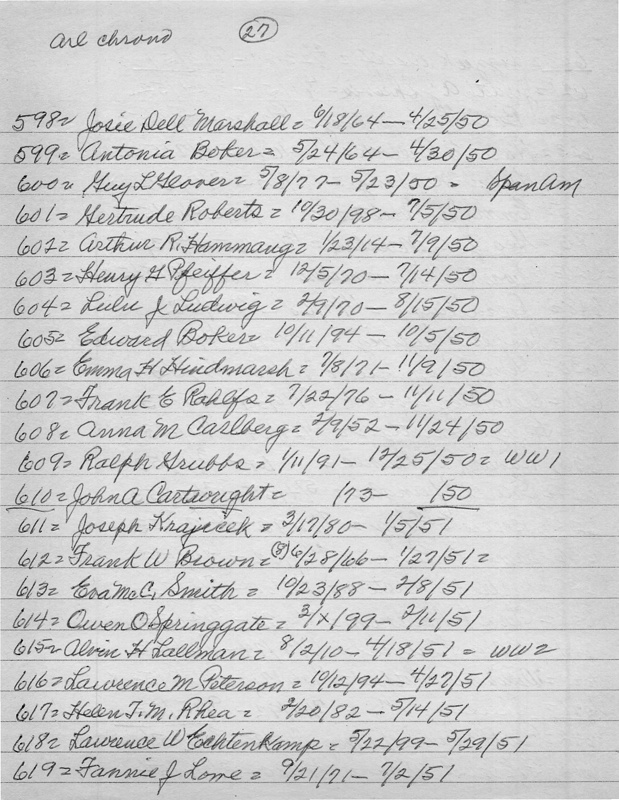 arl chrono 27
598= Josie Dell Marshall = 6/18/64 — 4/25/50
599= Antonia Boker = 5/24/64 — 4/30/50
600= Guy L Glover = 5/8/77 — 5/23/50 = SpanAm
601= Gertrude Roberts = 10/30/98 — 7/5/50
602= Arthur R. Hammang = 1/23/14 — 7/9/50
603= Henry G Pfeiffer = 12/5/70 — 7/14/50
604= Lulu J Ludwig = 2/9/70 — 8/15/50
605= Edward Boker = 10/11/94 — 10/5/50
606= Emma H Hindmarsh = 7/8/71 — 11/9/50
607= Frank E Rohlfs = 7/22/76 — 11/11/50
608= Anna M Carlberg = 2/9/52 — 11/24/50
609= Ralph Grubbs = 1/11/91 — 12/25/50 = WW1
610= John A Cartwright = /73 — /50
611= Joseph Krajicek = 3/17/80 — 1/5/51
612= Frank W Brown = (8) 6/28/66 — 1/27/51 =
613= Eva McC. Smith = 10/23/88 — 2/8/51
614= Owen O Springgate = 3/x/99 — 2/11/51
615= Alvin H Lallman = 8/2/10 — 4/18/51 = WW2
616= Lawrence M Peterson = 10/12/94 — 4/27/51
617= Helen T. M. Rhea = 2/20/82 — 5/14/51
618= Lawrence W Echtenkamp = 5/22/99 — 5/29/51
619= Fannie J Lowe = 9/21/71 — 7/2/51